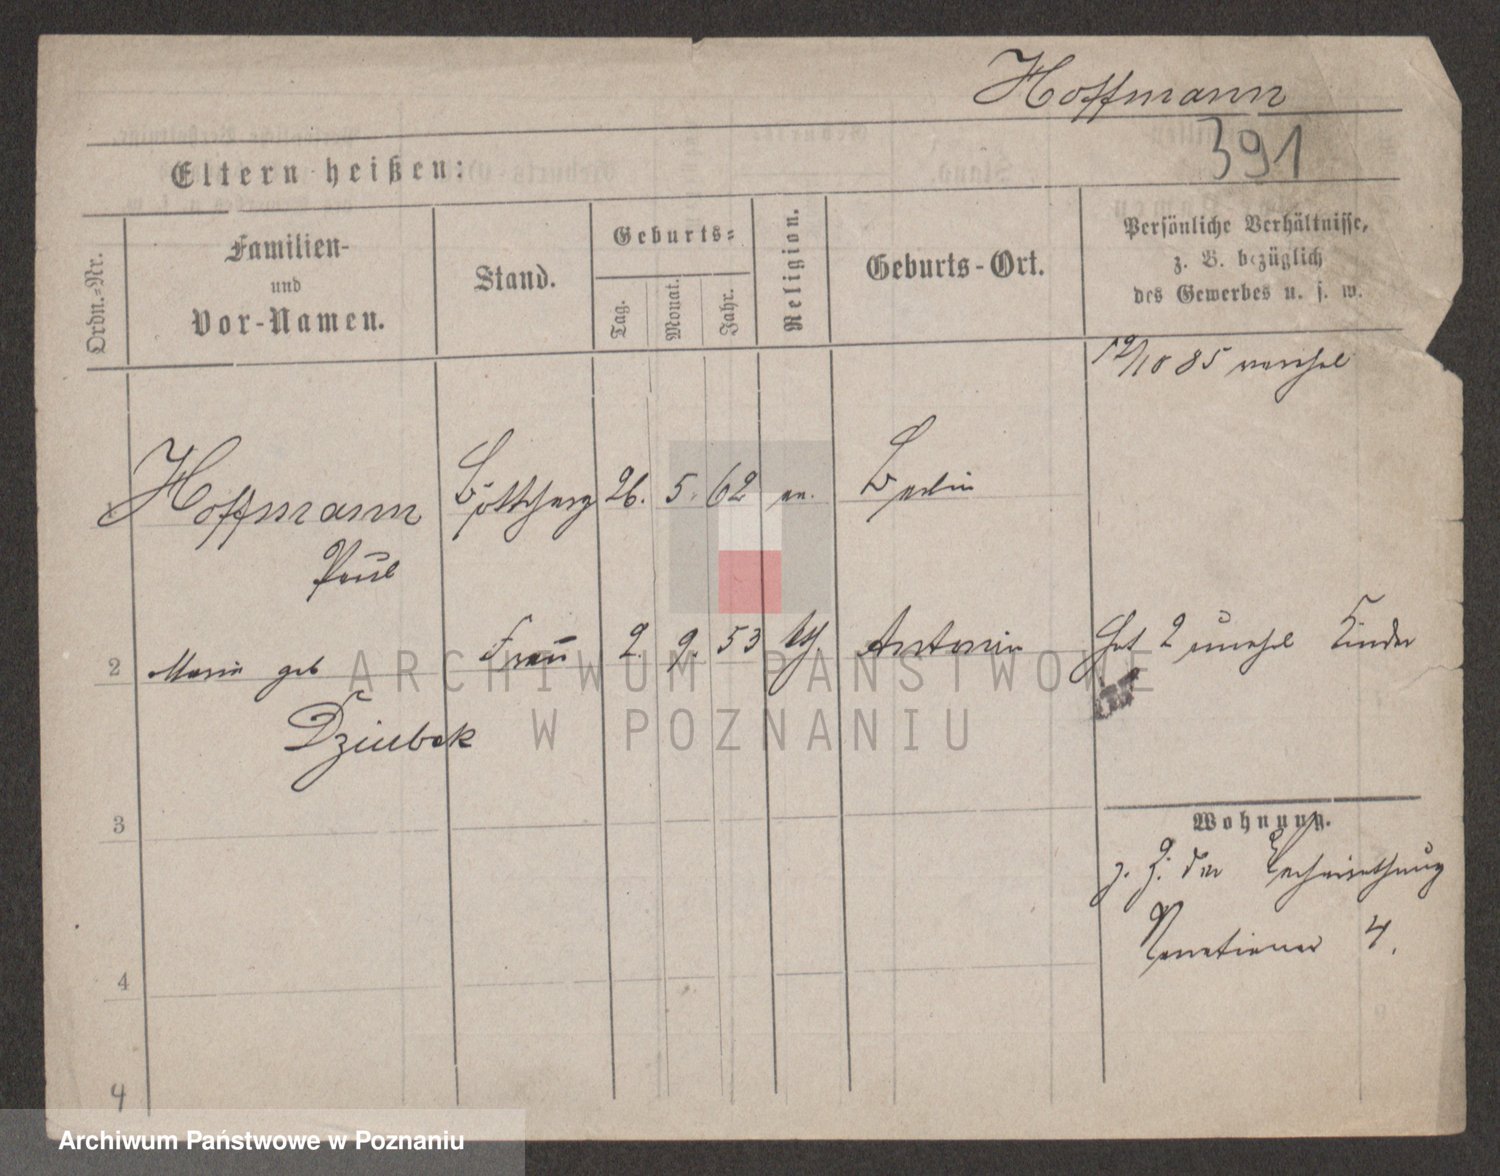 Hoffmann
391
Eltern heißen:
Ordn.-Nr.
Familien-
und
Vor-Namen.
Stand.
Geburts-
Tag.
Monat.
Jahr.
Religion.
Geburts-Ort.
Persönliche Verhältnisse,
z. B. bezüglich
des Gewerbes u. s. w.
12/10 85
1 Hoffmann Böttcherg 26. 5. 62 ev. Berlin
Paul
2 Maria geb Frau 2. 9. 53 kth Antonin Hat 2 unehel Kinder
Dziubek
3
Wohnung.
z. Z. der Verheirathung
Venetianer 4.
4
4
ARCHIWUM PAŃSTWOWE
W POZNANIU
Archiwum Państwowe w Poznaniu